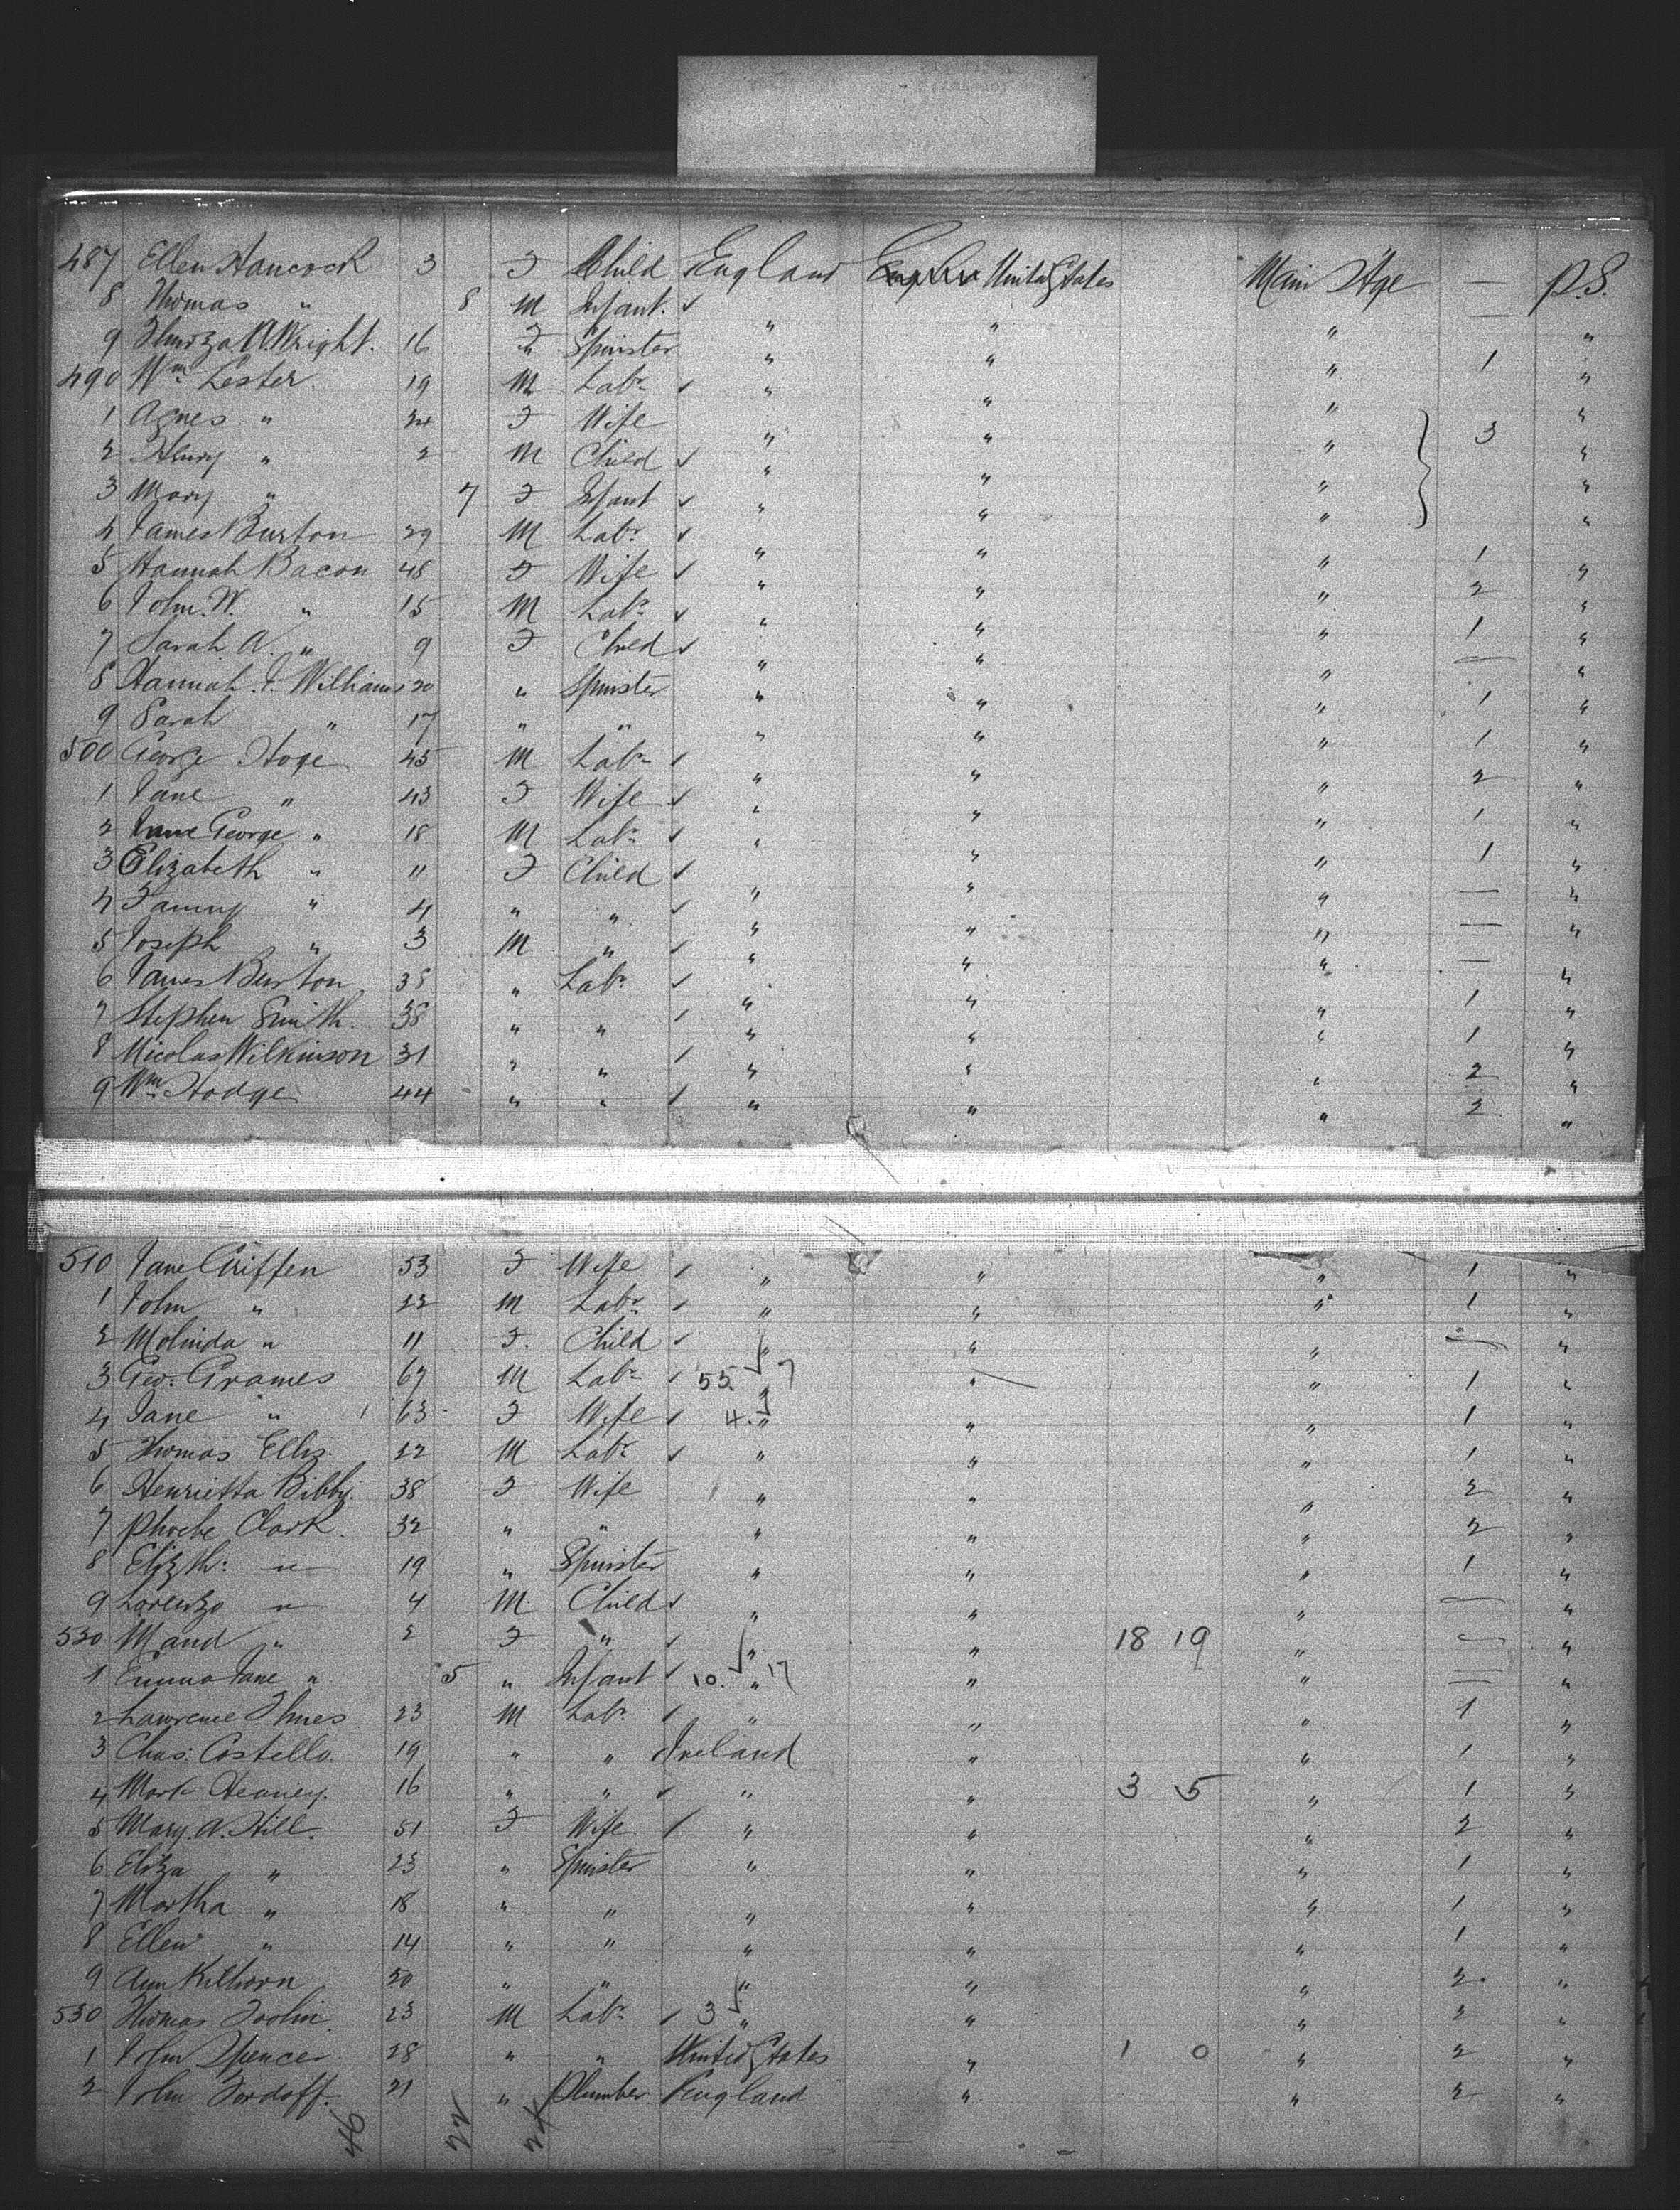 487 Ellen Hancock 3 F Child England United States Main Stge — P.S.
8 Thomas " 8 M Infant. ✓ " " " — "
9 A. Wright. 16 F Spinster " " " 1 "
490 Wm Lester. 19 M Labr ✓ " " " "
1 Agnes " 24 F Wife " " " 3 "
2 Henry " 2 M Child ✓ " " " "
3 Mary " 7 F Infant ✓ " " " "
4 James Burton 29 M Labr ✓ " " " 1 "
5 Hannah Bacon 48 F Wife ✓ " " " 2 "
6 John. W. " 15 M Labr ✓ " " " 1 "
7 Sarah A. " 9 F Child ✓ " " " — "
8 Hannah. J. Williams 20 " Spinster " " " 1 "
9 Sarah " 17 " " " " " 1 "
500 George Hoge 45 M Labr ✓ " " " 2 "
1 Jane " 43 F Wife ✓ " " " 1 "
2 George " 18 M Labr ✓ " " " 1 "
3 Elizabeth " 11 F Child ✓ " " " — "
4 Fanny " 4 " " ✓ " " " — "
5 Joseph " 3 M " ✓ " " " — "
6 James Burton 38 " Labr ✓ " " " 1 "
7 Stephen Smith. 38 " " ✓ " " " 1 "
8 Nicolas Wilkinson 31 " " ✓ " " " 2 "
9 Wm Hodge 44 " " ✓ " " " 2 "
510 Jane Griffen 53 F Wife ✓ " " " 1 "
1 John " 22 M Labr ✓ " " " 1 "
2 Molinda " 11 F. Child ✓ " " " — "
3 Geo: Grames 67 M Labr ✓ 55. 7 " " " 1 "
4 Jane " 63 F Wife ✓ 4. " " " 1 "
5 Thomas Ellis. 22 M Labr ✓ " " " 1 "
6 Henrietta Bibby. 38 F Wife " " " 2 "
7 Phoebe Clark. 32 " " " " " 2 "
8 Elizth: " 19 " Spinster " " " 1 "
9 Lorenzo " 4 M Child ✓ " " " — "
520 Maud " 2 F " ✓ " " 18 19 " — "
1 Emma Jane " 5 " Infant ✓ 10. 17 " " " — "
2 Lawrence 23 M Labr ✓ " " " 1 "
3 Chas: Costello. 19 " " Ireland " " 1 "
4 Mark Heaney. 16 " " ✓ " " 3 5 " 1 "
5 Mary. A. Hill. 51 F Wife ✓ " " " 2 "
6 Eliza " 23 " Spinster " " " 1 "
7 Martha " 18 " " " " " 1 "
8 Ellen " 14 " " " " " 1 "
9 Ann Kilhorn 50 " " " " " 2 "
530 Thomas 23 M Labr ✓ 3 " " " 2 "
1 John Spencer 28 " " United States " 1 0 " 2 "
2 John Tordoff. 21 " Plumber England " " 2 "
46 22 24